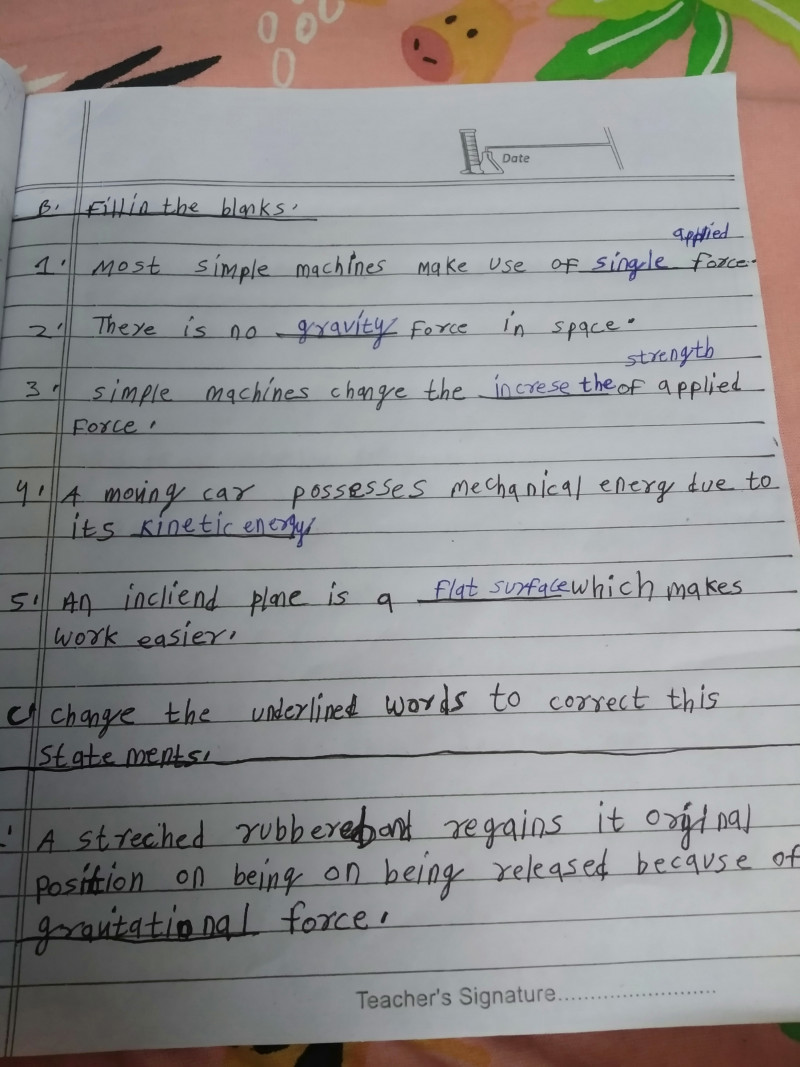 Date
B. Fill in the blanks.
applied
1. Most simple machines make use of single force.
2. There is no gravity force in space.
strength
3. simple machines change the increse the of applied
force.
4. A moving car possesses mechanical energy due to
its kinetic energy
5. Anincliend plane is a flat surface which makes
work easier.
C. Change the underlined words to correct this
statements.
A streched rubber band regains it orginal
position on being on being released because of
gravitational force.
Teacher's Signature..........................